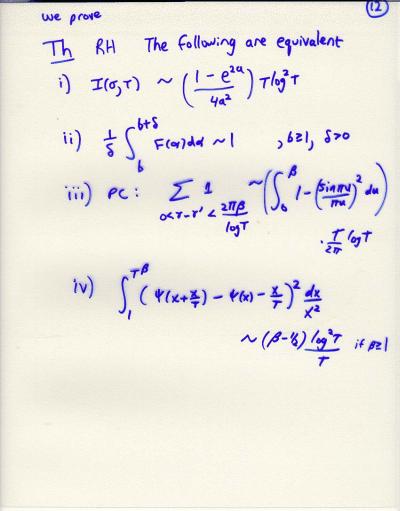 12
we prove
Th RH The following are equivalent
i) I(σ,T) ~ ( (1 - e^{2a}) / 4a² ) T log² T
ii) 1/δ ∫_b^{b+δ} F(α) dα ~ 1 , b≥1, δ>0
iii) PC: ∑_{0<γ-γ' < 2πβ/log T} 1 ~ ( ∫_0^β 1 - (sin πu / πu)² du )
· T/2π log T
iv) ∫_1^{T^β} ( ψ(x + x/T) - ψ(x) - x/T )² dx/x²
~ (β - 1/2) log² T / T if β≥1